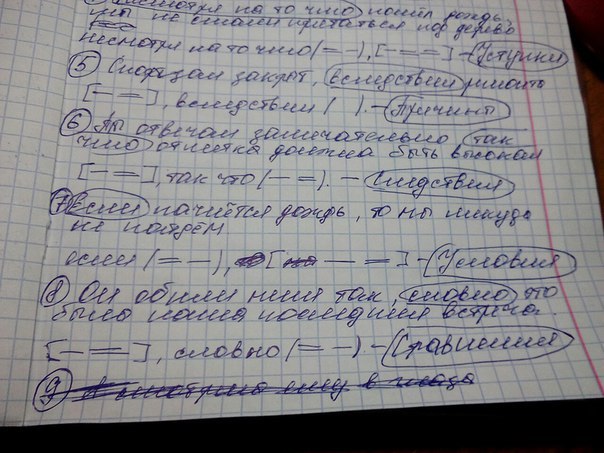 несмотря на то что пошёл дождь,
мы не стали прятаться под дерево
несмотря на то что (= –), [– = =] – Уступки
⑤ Спортзал закрыт, вследствии ремонта
[– =], вследствии ( ). – Причины
⑥ Ты отвечал замечательно так
что отметка должна быть высокая
[– =], так что (– =). – Следствия
⑦ Если начнётся дождь, то мы никуда
не пойдём
если (= –), [– =] – Условия
⑧ Он обнял меня так, словно это
была наша последняя встреча.
[– =], словно (= –). – Сравнения
⑨